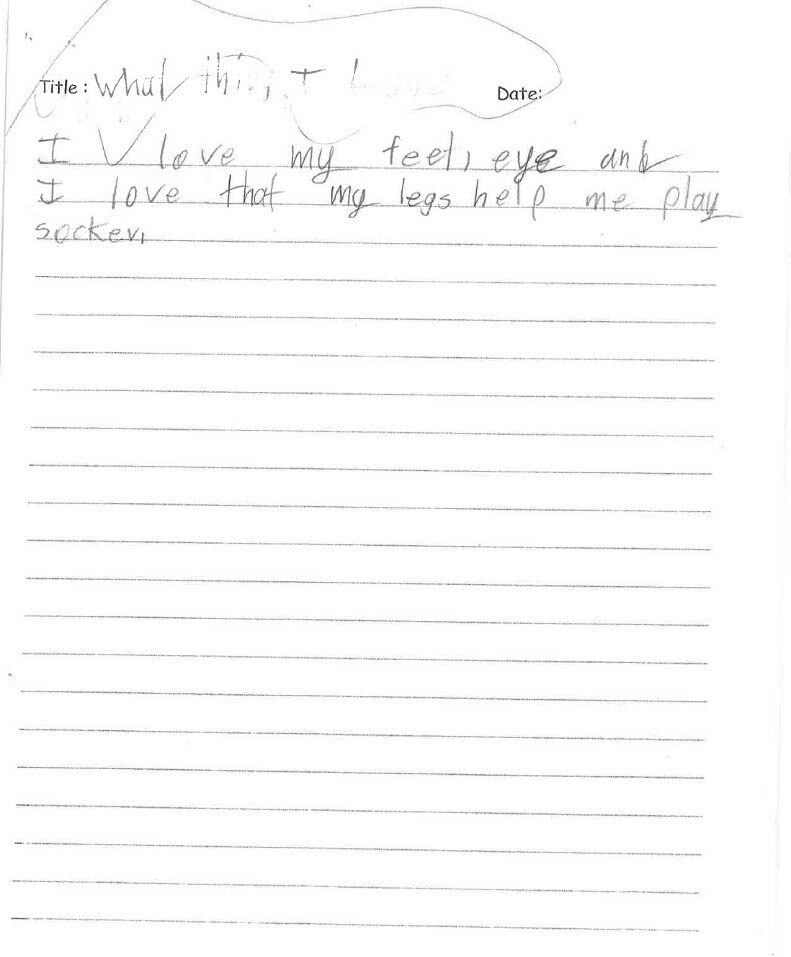 Title : What thing I Love Date:
I love my feet, eye anb
I love that my legs help me play
socker,